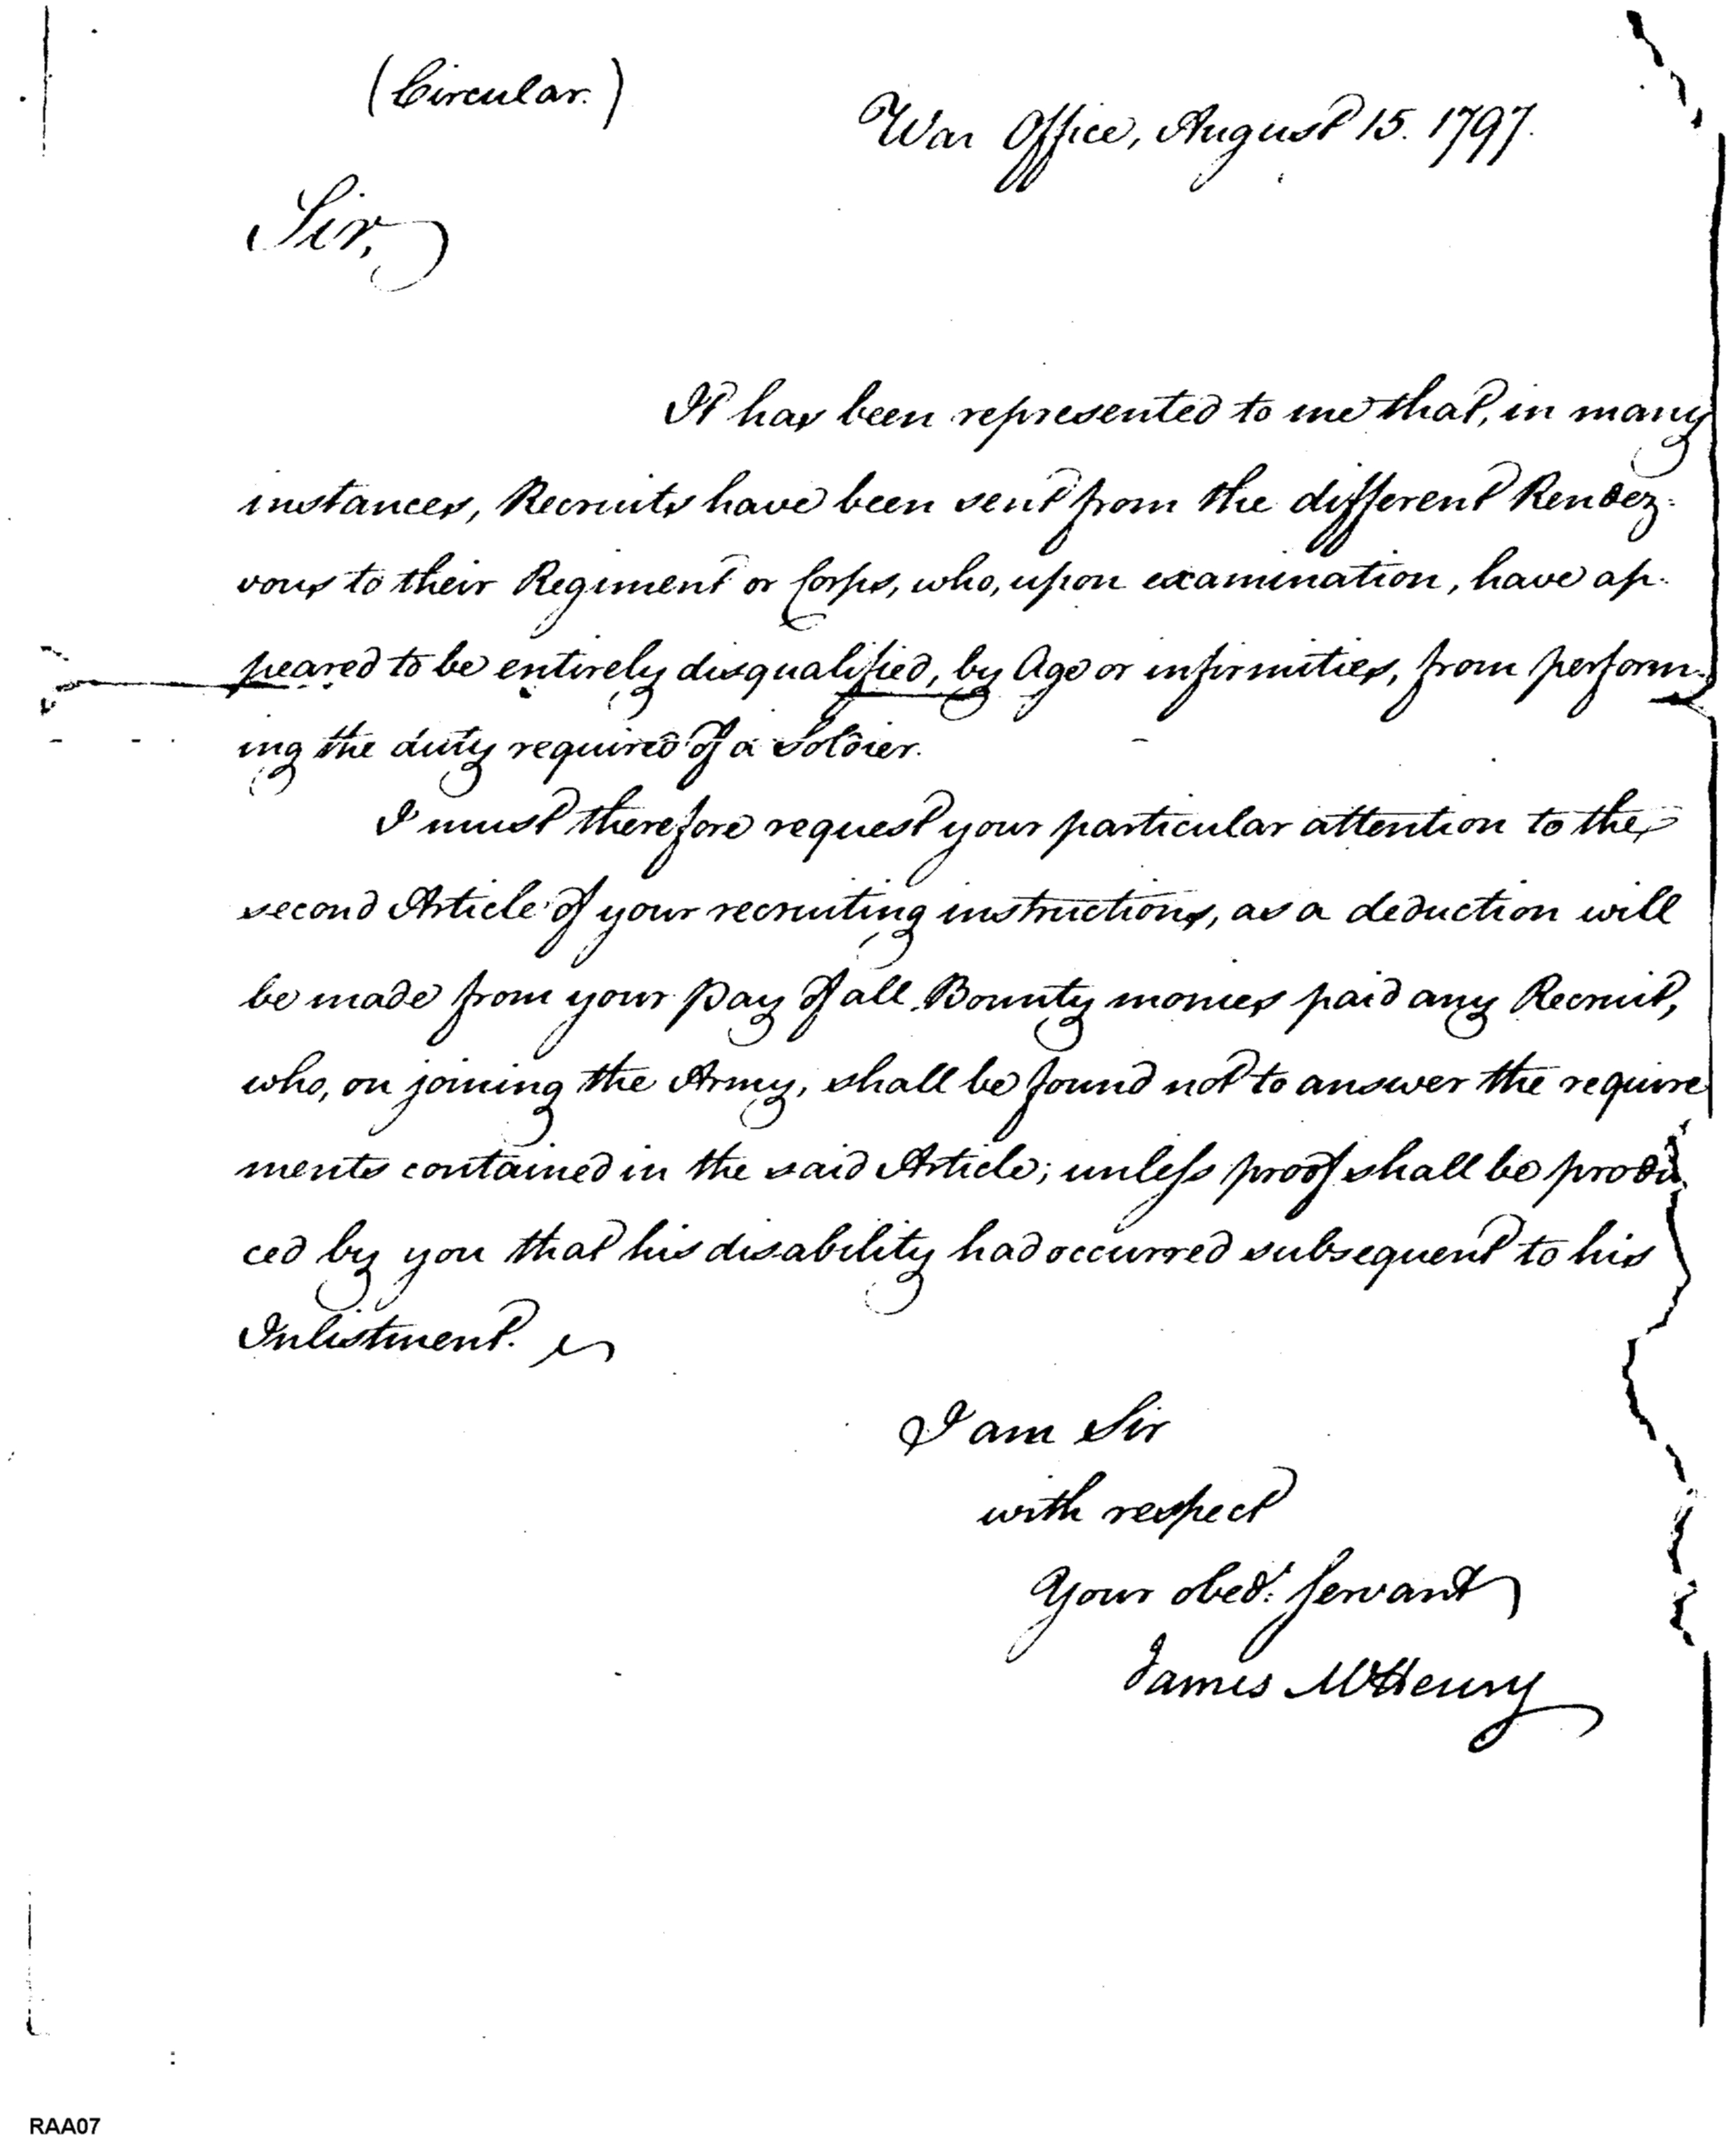 (Circular.)
War Office, August 15. 1797.
Sir,
It has been represented to me that, in many
instances, Recruits have been sent from the different Rendez-
vous to their Regiment or Corps, who, upon examination, have ap-
peared to be entirely disqualified, by Age or infirmities, from perform-
ing the duty required of a Soldier.
I must therefore request your particular attention to the
second Article of your recruiting instructions, as a deduction will
be made from your Pay of all Bounty monies paid any Recruit,
who, on joining the Army, shall be found not to answer the require
ments contained in the said Article; unless proof shall be produ
ced by you that his disability had occurred subsequent to his
Inlistment.
I am Sir
with respect
Your obed.t Servant
James McHenry
RAA07